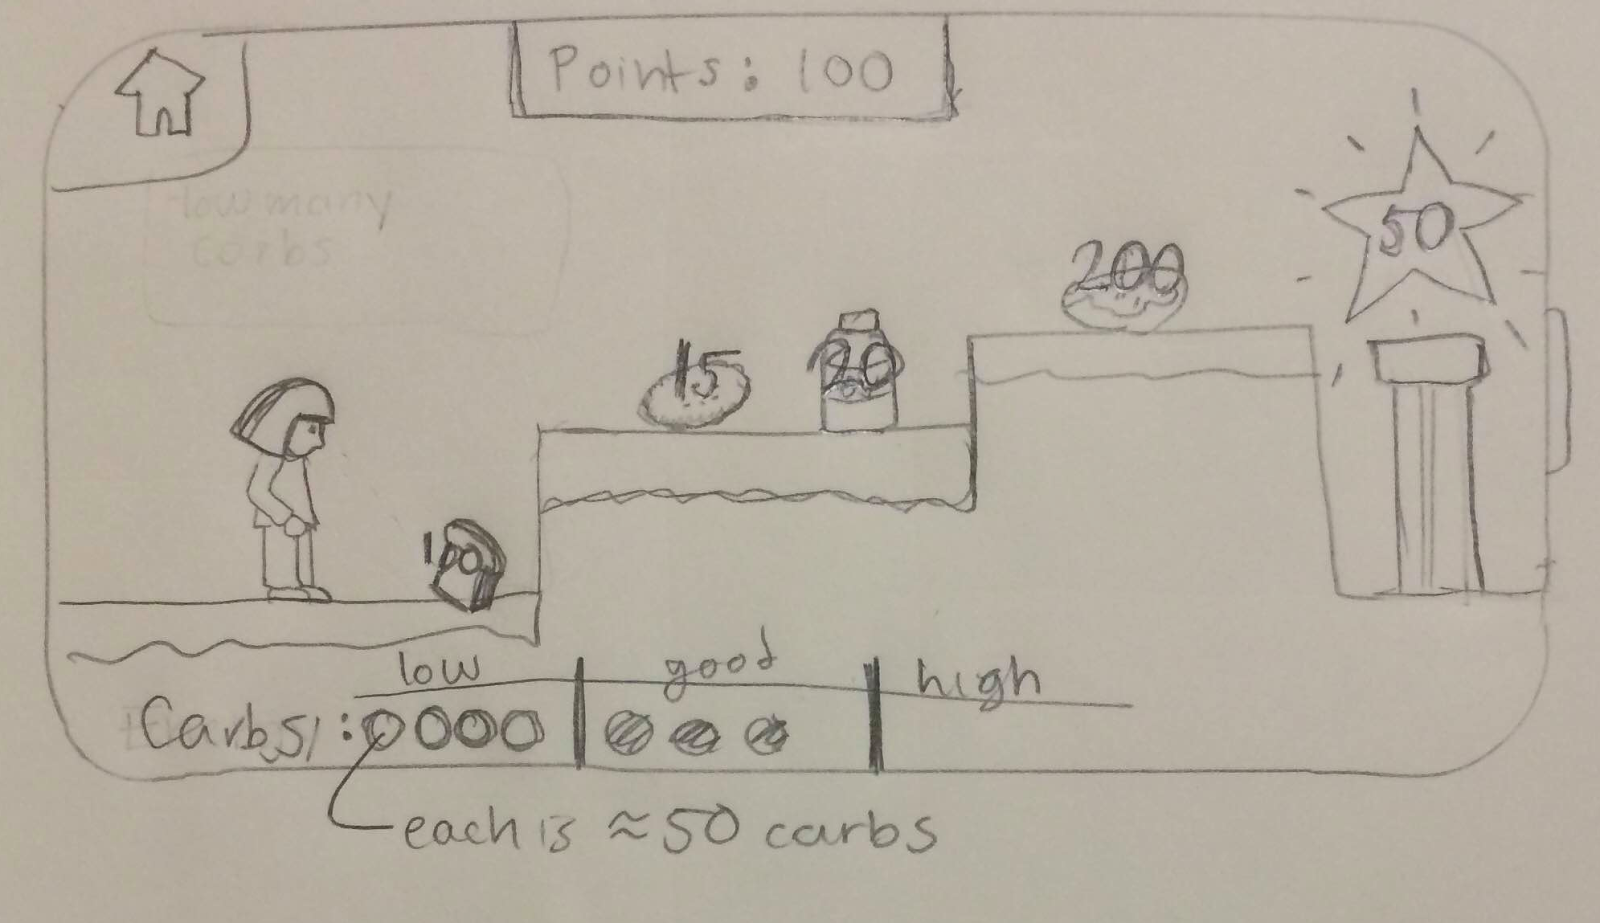 Points: 100
low many
carbs
50
200
15
20
100
low good high
Carbs:
each is ≈50 carbs